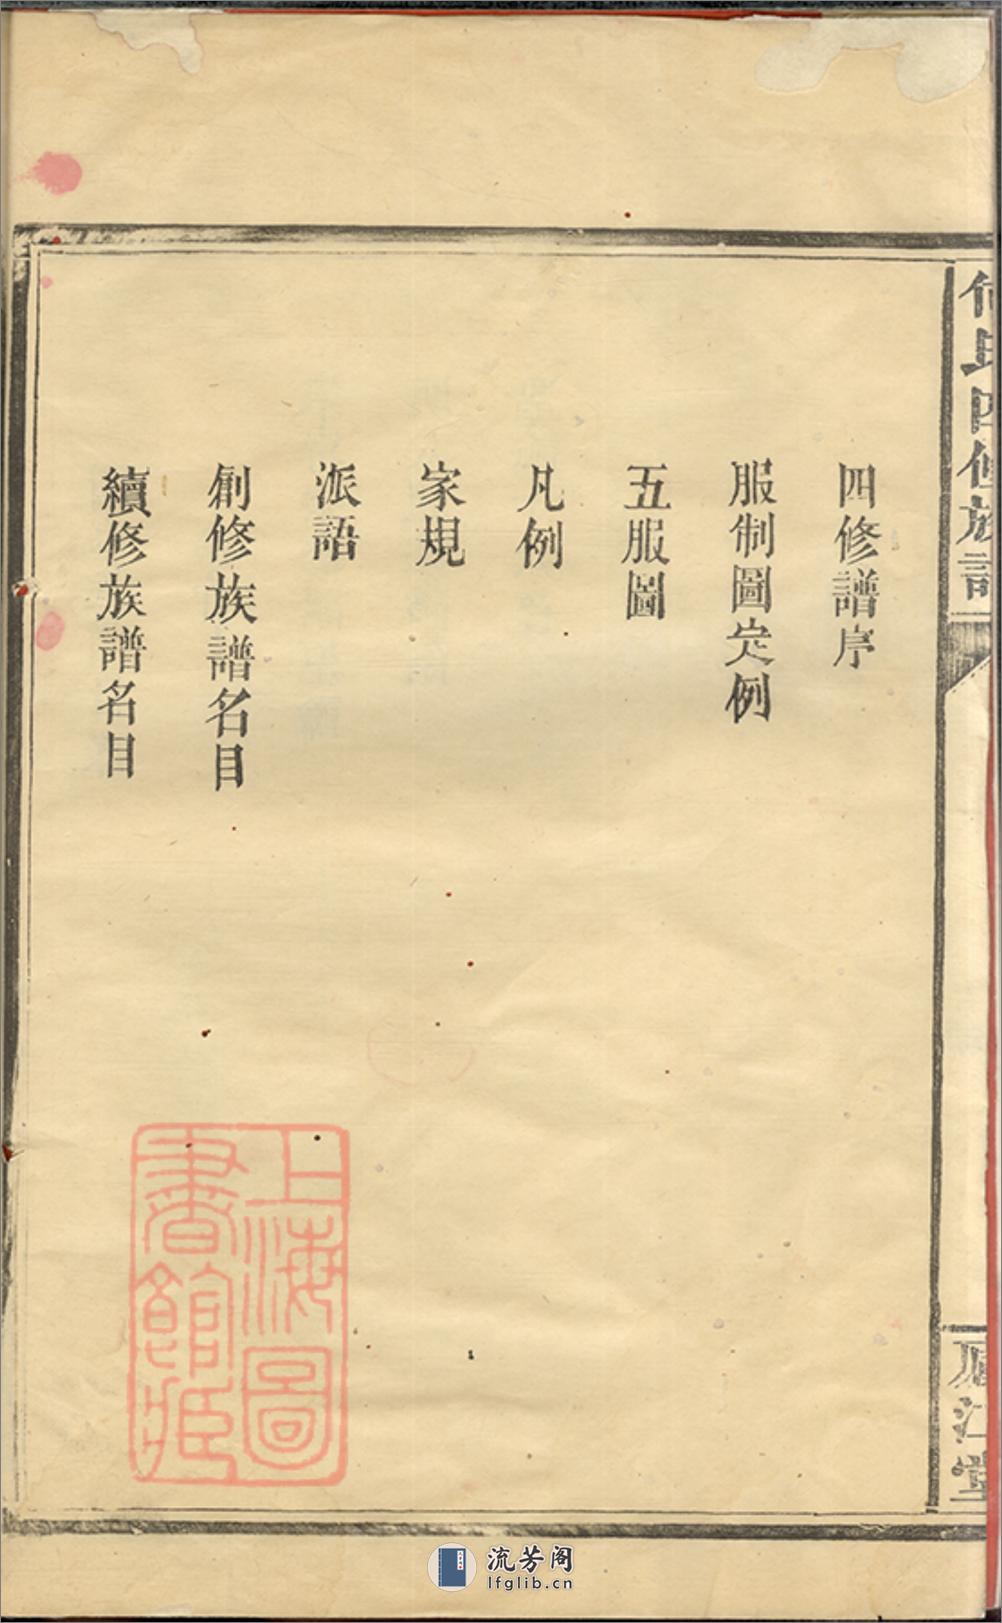 何氏四修族譜
廬江堂
四修譜序
服制圖定例
五服圖
凡例
家規
派語
創修族譜名目
續修族譜名目
上海圖
書館藏
流芳阁
lfglib.cn